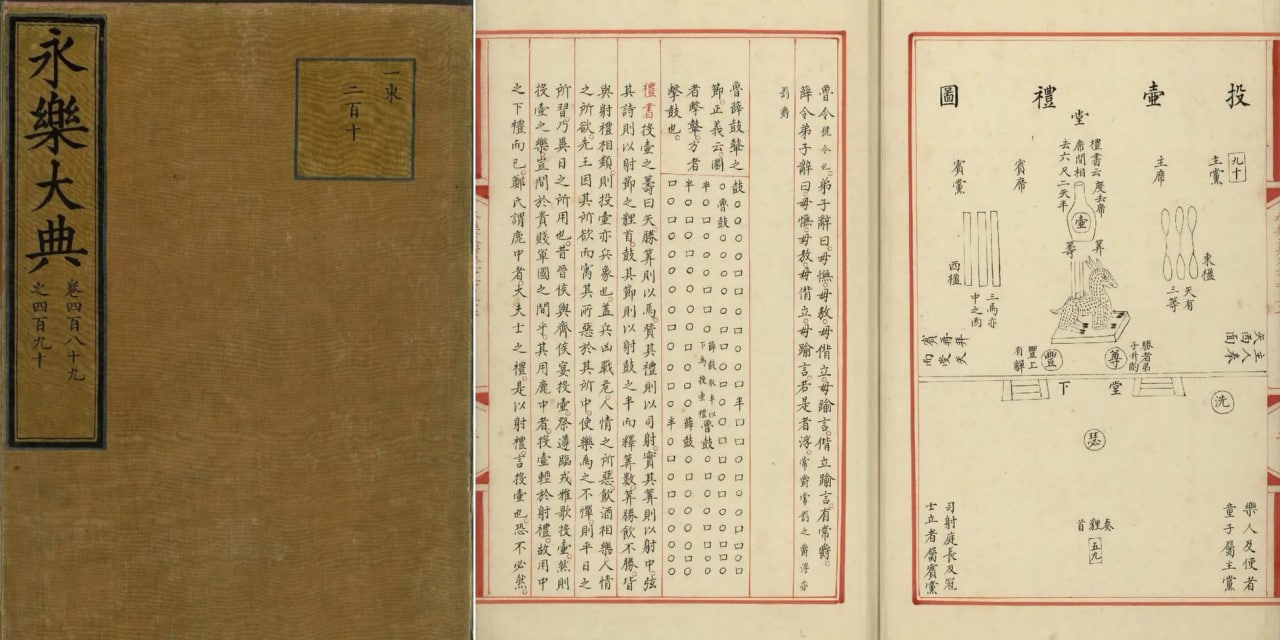 永樂大典
卷四百八十九
之四百九十
一東
二百十
投壺禮圖
堂
九十
主黨
主席
東楹
矢有
三等
禮書云度去席
席間相
去六尺二矢半
壺
筭
籌
賓席
賓黨
西楹
三馬亦
中之西
主人奉
矢西面
勝者弟
子升酌
尊
豐
豐上
有觶
賓再拜
而受矢
堂下
洗
瑟
奏貍首
五九
樂人及使者
童子屬主黨
司射庭長及冠
士立者屬賓黨
魯令號令也。弟子辭曰。毋憮。毋敖。毋偝立。毋踰言。偝立踰言。有常爵。
薛令弟子辭曰。毋憮。毋敖。毋偝立。毋踰言。若是者浮。常爵常罰之爵浮亦
罰爵
魯薛鼓鼙之
節。正義云圜
者擊鼙。方者
擊鼓也。
鼓
○魯鼓
半
半
薛鼓取半以
下為投壺禮
魯鼓
薛鼓
半
半
禮書投壺之籌曰矢。勝筭則以馬。贊其禮則以司射。實其筭則以射中。弦
其詩則以射節之貍首。鼓其節。則以射鼓之半。而釋筭數筭勝飲不勝。皆
與射禮相類。則投壺亦兵象也。蓋兵凶戰危。人情之所惡。飲酒相樂。人情
之所欲。先王因其所欲而寓其所惡於其所中。使樂為之不憚。則平日之
所習。乃異日之所用也。昔晉侯與齊侯宴投壺。祭遵臨戎雅歌投壺。然則
投壺之樂。豈間於貴賤軍國之間乎。其用鹿中者。投壺輕於射禮。故用中
之下禮而已。鄭氏謂鹿中者。大夫士之禮。是以射禮言投壺也。恐不必然。